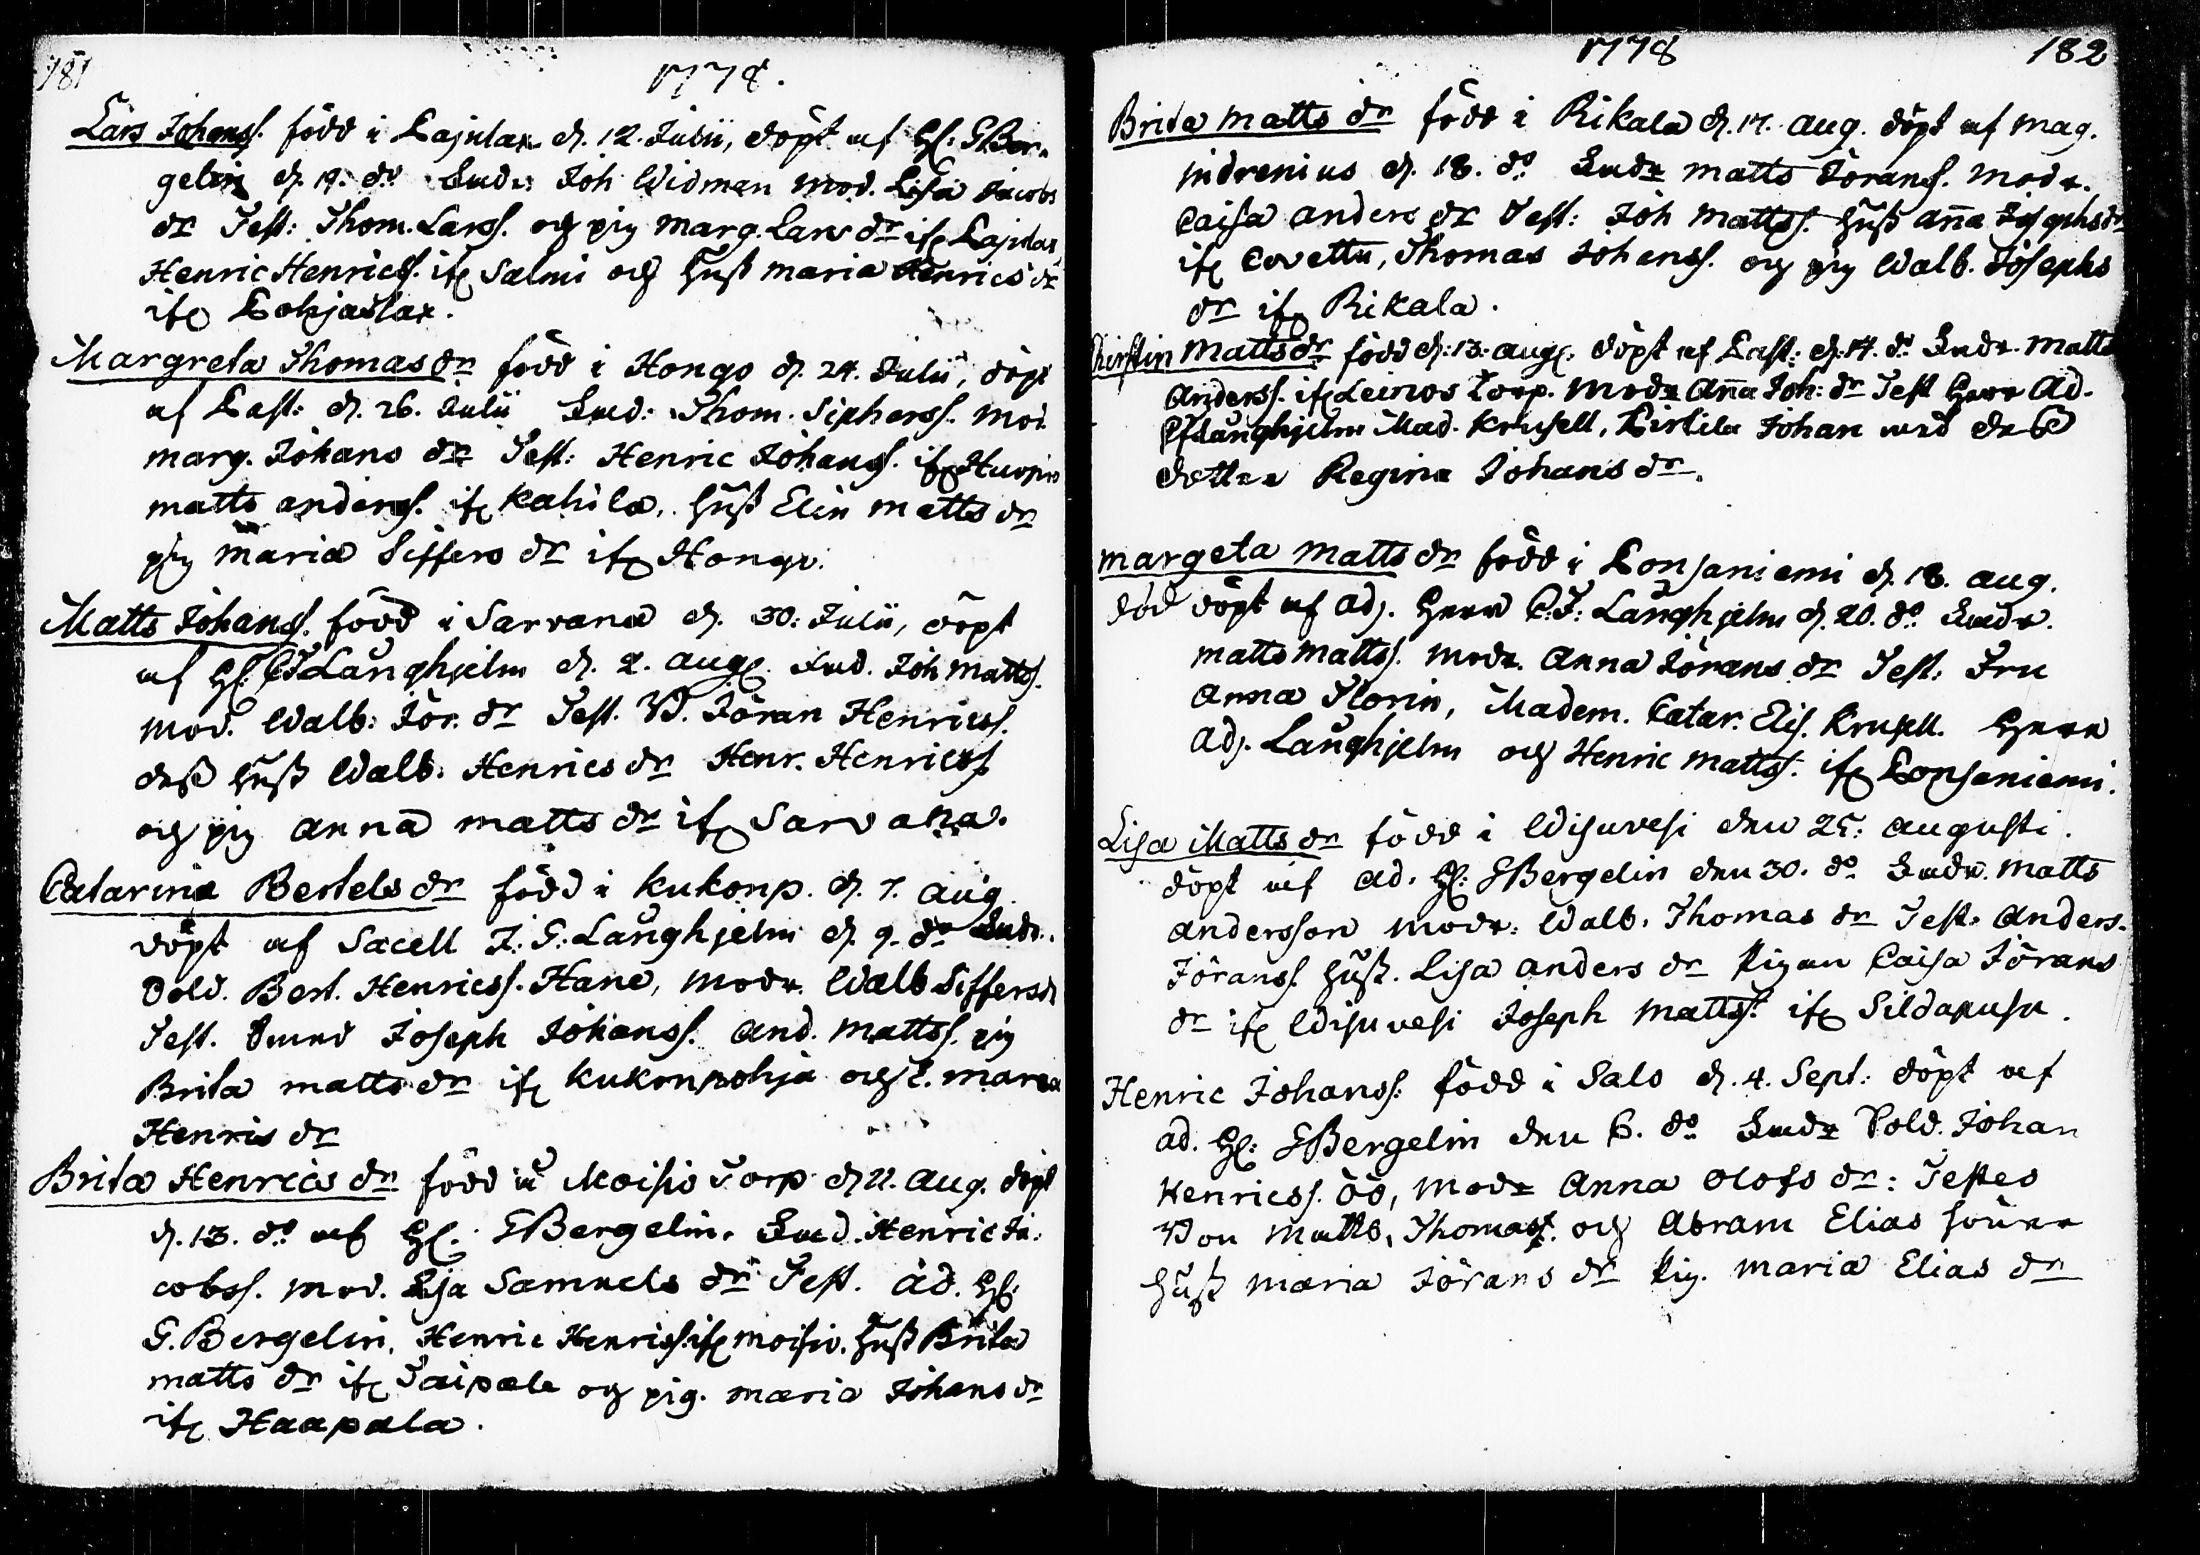 181
1778.
Lars Johanss. född i Lajulax d. 12. Julii, döpt af H: G Ber-
gelin d. 19. do Fadr: Joh Widman mod. Lisa Jacobs
dr Test: Thom. Larss. och pig Marg. Lars dr ifr Lajulax
Henric Henricss. ifr Salmi och hust maria Henrics dr
ifr Lohjaslax.
Margreta Thomas dr född i Hongo d. 24. Julii, döpt
af Past: d. 26. Julii Fad: Thom. Sipherss. Mod
marg. Johans dr Test: Henric Johanss. ifr
matts anderss. ifr Kahila, hust Elin matts dr
pig maria Siffers dr ifr Hongo.
Matts Johanss. född i Sarvana d. 30: Julii, döpt
af H: Långhjelm d. 2. aug. Fad. Joh Matts.
mod. Walb: Jör. dr Test. Jöran Henricss.
dess hust Walb. Henrics dr Henr. Henricss
och pig anna matts dr ifr Sarvana.
Catarina Bertels dr född i Kukonp. d. 7. aug.
döpt af Sacell J. G. Långhjelm d. 9. do Fadr.
Sold. Bert. Henricss. Hane, modr. Walb Siffersdr
Test. Joseph Johanss. And. Mattss. pig
Brita matts dr ifr Kukonpohja och maria
Henris dr
Brita Henrics dr född i Moisio Torp d 11. Aug. döpt
d. 13. do af H: G Bergelin. Fad. Henric Ja-
cobss. mod. Lisa Samuels dr Test. Ad. H:
G. Bergelin, Henric Henricss. ifr moisio. hust Brita
matts dr ifr Taipale och pig. maria Johans dr
ifr Haapala.
1778
182
Brita Matts dr född i Rikala d. 17. aug. döpt af Mag.
Indrenius d. 18. do Fadr matts Jöranss. Modr.
Caisa anders dr Test: Joh Mattss. hust aña Josephs dr
ifr Covettu, Thomas Johanss. och pig Walb. Josephs
dr ifr Rikala.
Chirstin Matts dr född d: 13: aug: döpt af Past: d: 14. do Fadr. Matts
Anderss. ifr Leinos Torp. Modr Aña Joh: dr Test Herr Ad.
Långhjelm Mad. Krusell, Kistila Johan med dess
dotter Regina Johans dr.
margeta Matts dr född i Lonjaniemi d. 18. aug.
död döpt af adj. Herr C: F: Långhjelm d. 20. do Fadr.
matts mattss. modr. Anna Jörans dr Test: Fru
Anna Florin, Madem. Catar. Elis. Krusell. Herr
Adj. Långhjelm och Henric mattss. ifr Lonjaniemi.
Lisa Matts dr född i Wisuvesi den 25: augusti.
döpt af ad. H: G Bergelin den 30. do Fadr. Matts
andersson modr: Walb. Thomas dr Test. Anders
Jöranss. hust. Lisa anders dr Pigan Caisa Jörans
dr ifr Wisuvesi Joseph Mattss. ifr Sildapusu.
Henric Johanss. född i Salo d. 4. Sept: döpt af
ad. H: G Bergelin den 6. do Fadr Sold. Johan
Henricss. Öö, modr Anna Olofs dr: Testes
Bon Matts, Thomass. och Abram Elias söner
hust maria Jörans dr Pig. maria Elias dr